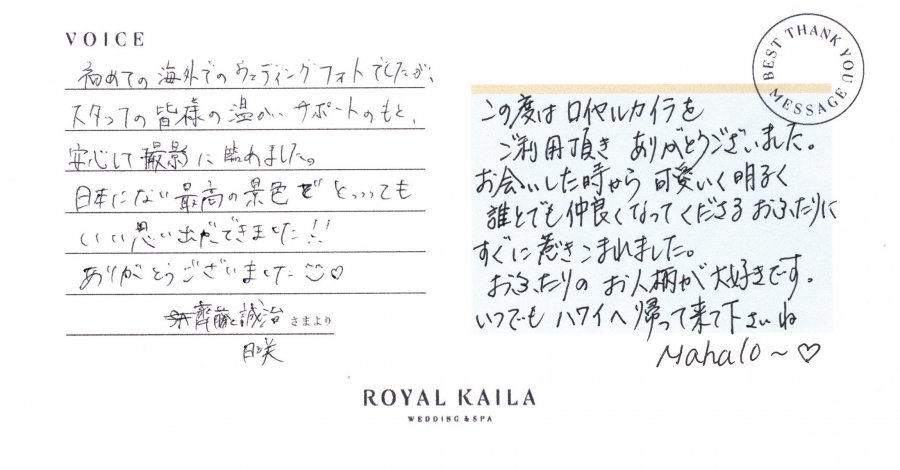 VOICE
初めての海外でのウェディングフォトでしたが、
スタッフの皆様の温かいサポートのもと、
安心して撮影に臨めました。
日本にない最高の景色でとっっっても
いい思い出ができました!!
ありがとうございました♡
齊藤 誠治 さまより
BEST THANK YOU MESSAGE
この度はロイヤルカイラを
ご利用頂き ありがとうございました。
お会いした時から 可愛いく明るく
誰とでも仲良くなってくださるおふたりに
すぐに惹きこまれました。
おふたりの お人柄が大好きです。
いつでも ハワイへ帰って来て下さいね
Mahalo~♡
ROYAL KAILA
WEDDING & SPA